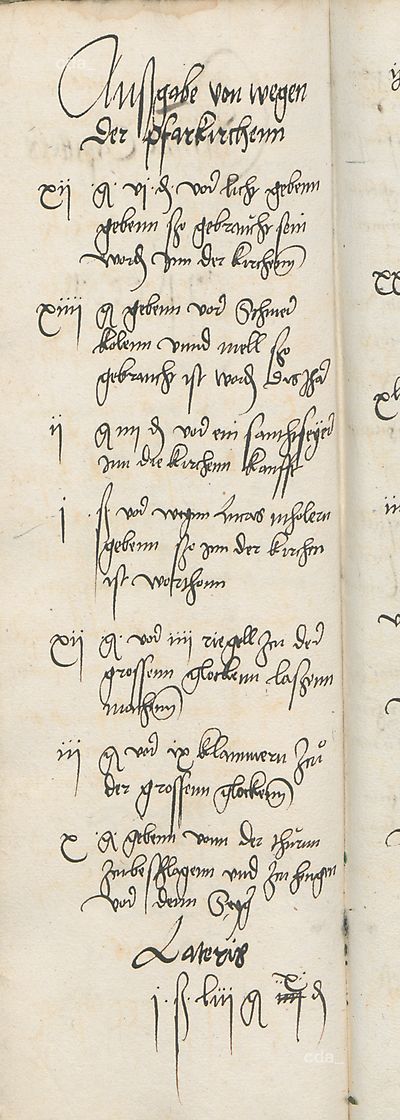 Ausgabe von wegen
der pfarkirchenn
xii g vi d vor licht gebenn
gebenn szo gebraucht sein
word inn der kirchenn
xiiii g gebenn vor Schmer
kolenn vnnd mell szo
gebraucht ist word das Jhar
ii g iiii d vor ein
inn die kirchenn kaufft
i ß vor wegenn Lucas
gebenn szo inn der kirchen
ist worthonn
xii g vor iiii riegell zu der
grossenn glockenn laszenn
machenn
iii g vor ix klammern zu
der grossenn glockenn
x g gebenn vonn der thurm
zubeschlagenn vnd zu hengen
vor denn
Lateris
i ß liii g xi d
cda_